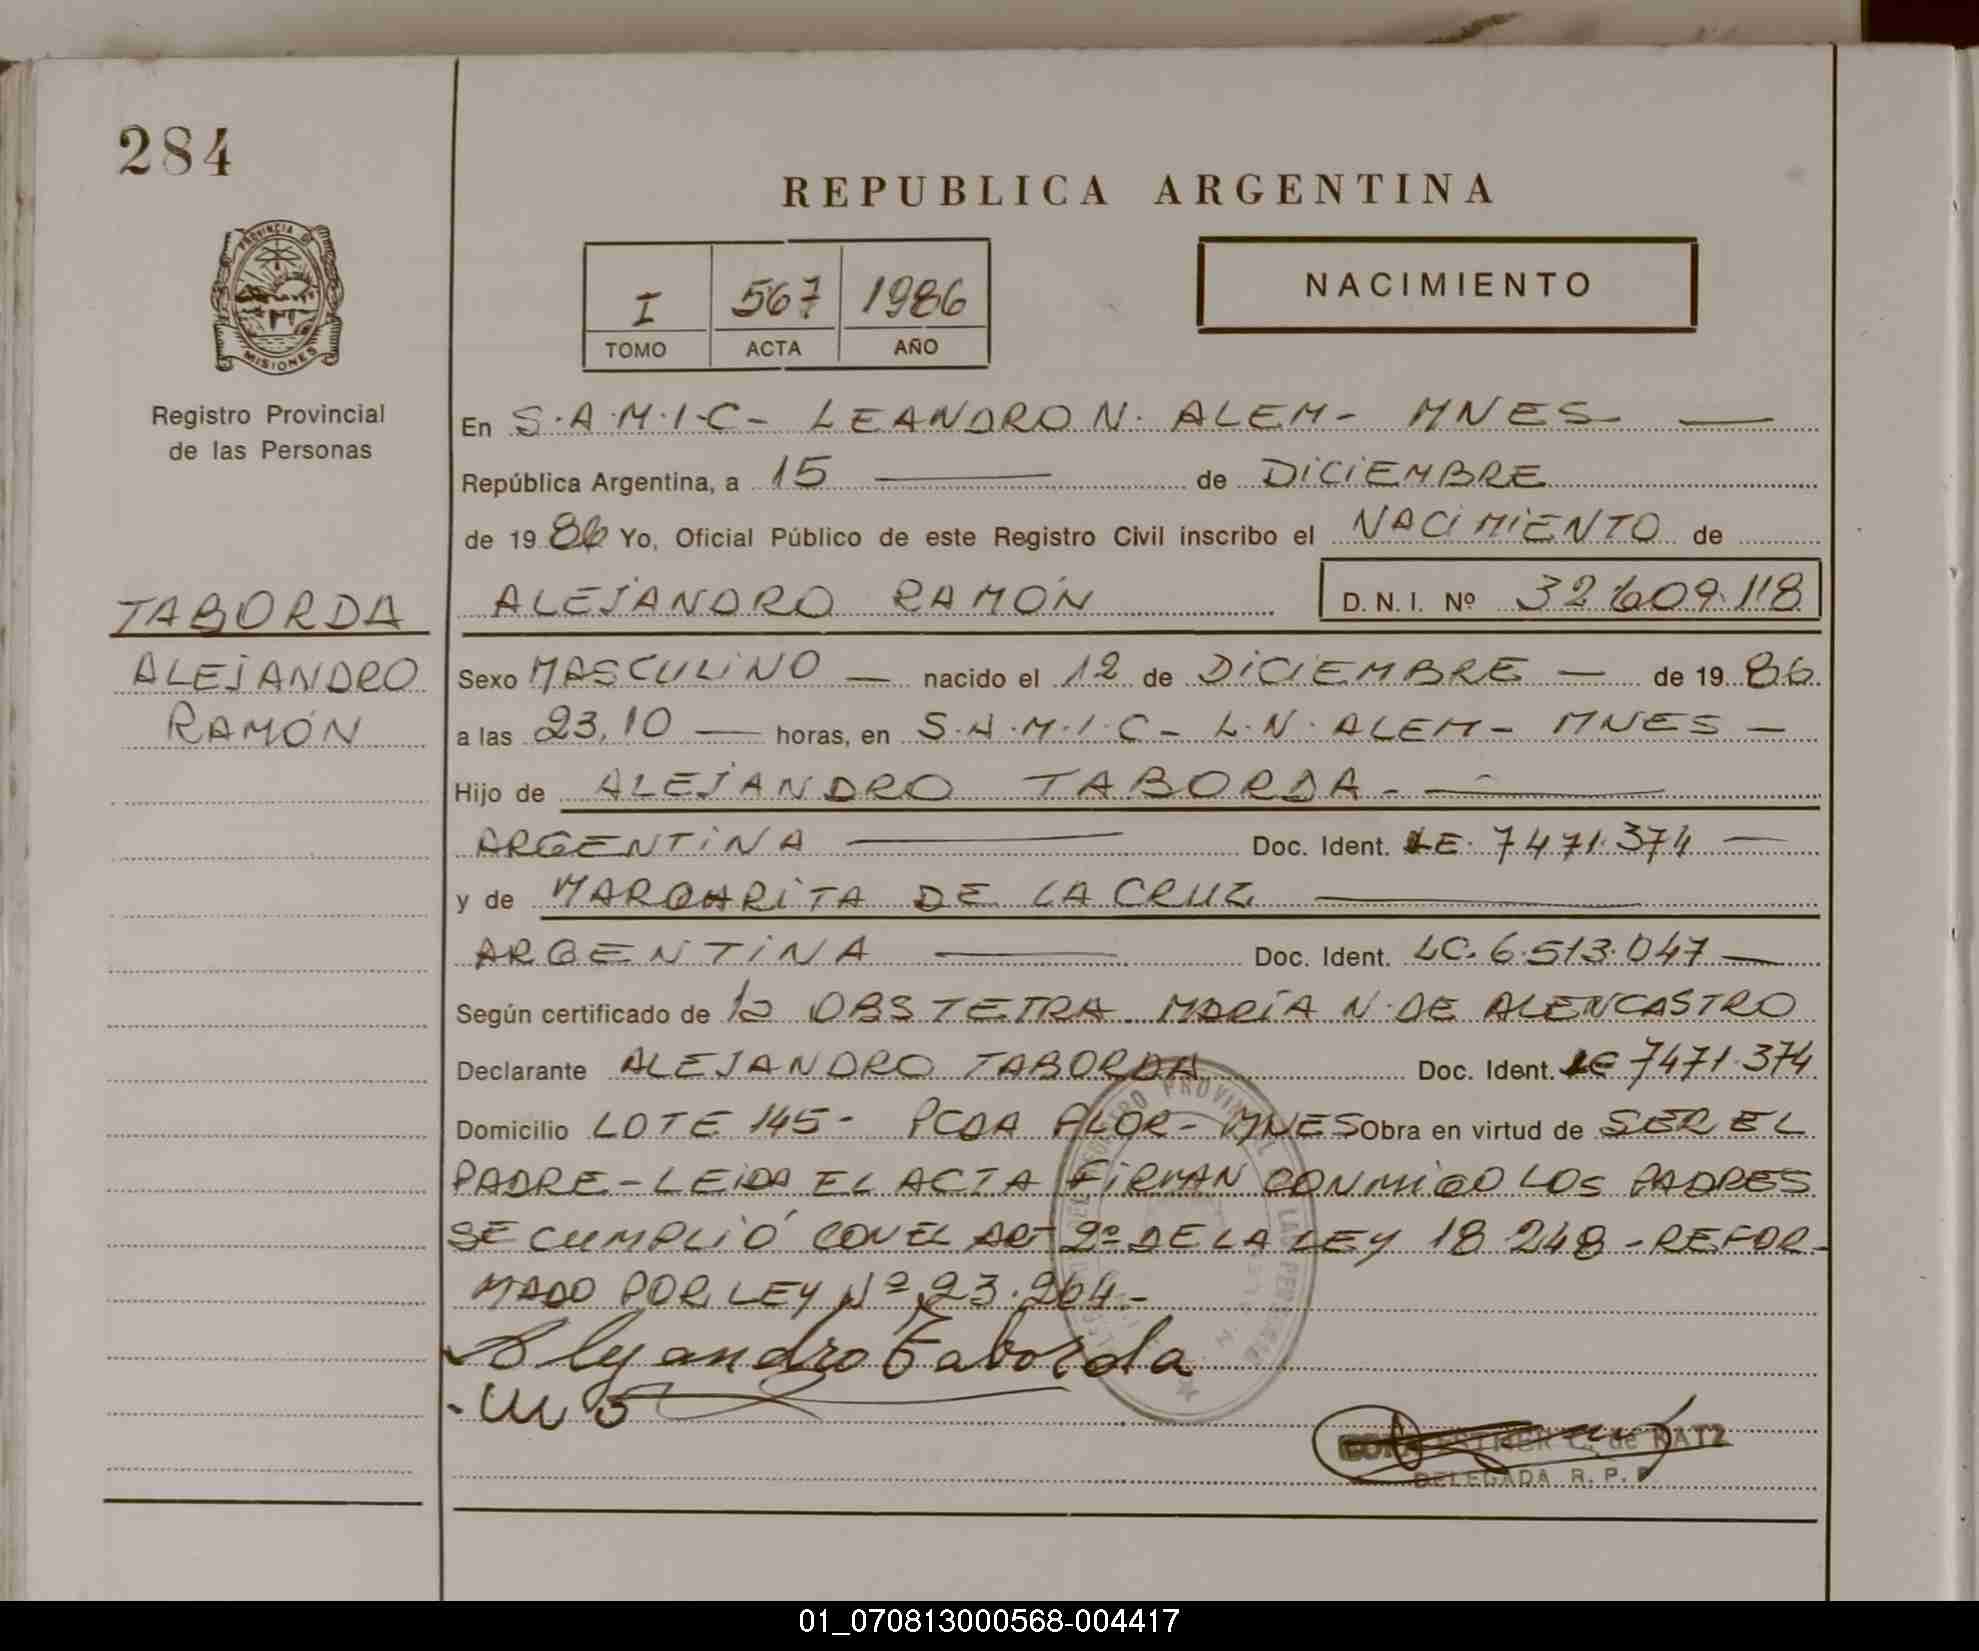 284
REPUBLICA ARGENTINA
NACIMIENTO
I 567 1986
TOMO ACTA AÑO
PROVINCIA DE
MISIONES
Registro Provincial
de las Personas
En S.A.M.I.C - LEANDRO N. ALEM - MNES
República Argentina, a 15 de DICIEMBRE
de 19 86 Yo, Oficial Público de este Registro Civil inscribo el NACIMIENTO de
ALEJANDRO RAMÓN D.N.I. Nº 32.609.118
TABORDA
ALEJANDRO
RAMÓN
Sexo MASCULINO - nacido el 12 de DICIEMBRE - de 19 86
a las 23,10 - horas, en S.A.M.I.C - L.N. ALEM - MNES -
Hijo de ALEJANDRO TABORDA -
ARGENTINA Doc. Ident. LE. 7471.374 -
y de MARGARITA DE LA CRUZ
ARGENTINA Doc. Ident. LC. 6.513.047 -
Según certificado de la OBSTETRA MARÍA N. DE ALENCASTRO
Declarante ALEJANDRO TABORDA Doc. Ident. LE 7471.374
Domicilio LOTE 145 - PCDA FLOR - MNES Obra en virtud de SER EL
PADRE - LEIDA EL ACTA FIRMAN CONMIGO LOS PADRES
SE CUMPLIÓ CON EL ART 2º DE LA LEY 18.248 - REFOR-
MADO POR LEY Nº 23.264.-
Alejandro Taborda
C. de KATZ
DELEGADA R.P.P
01_070813000568-004417